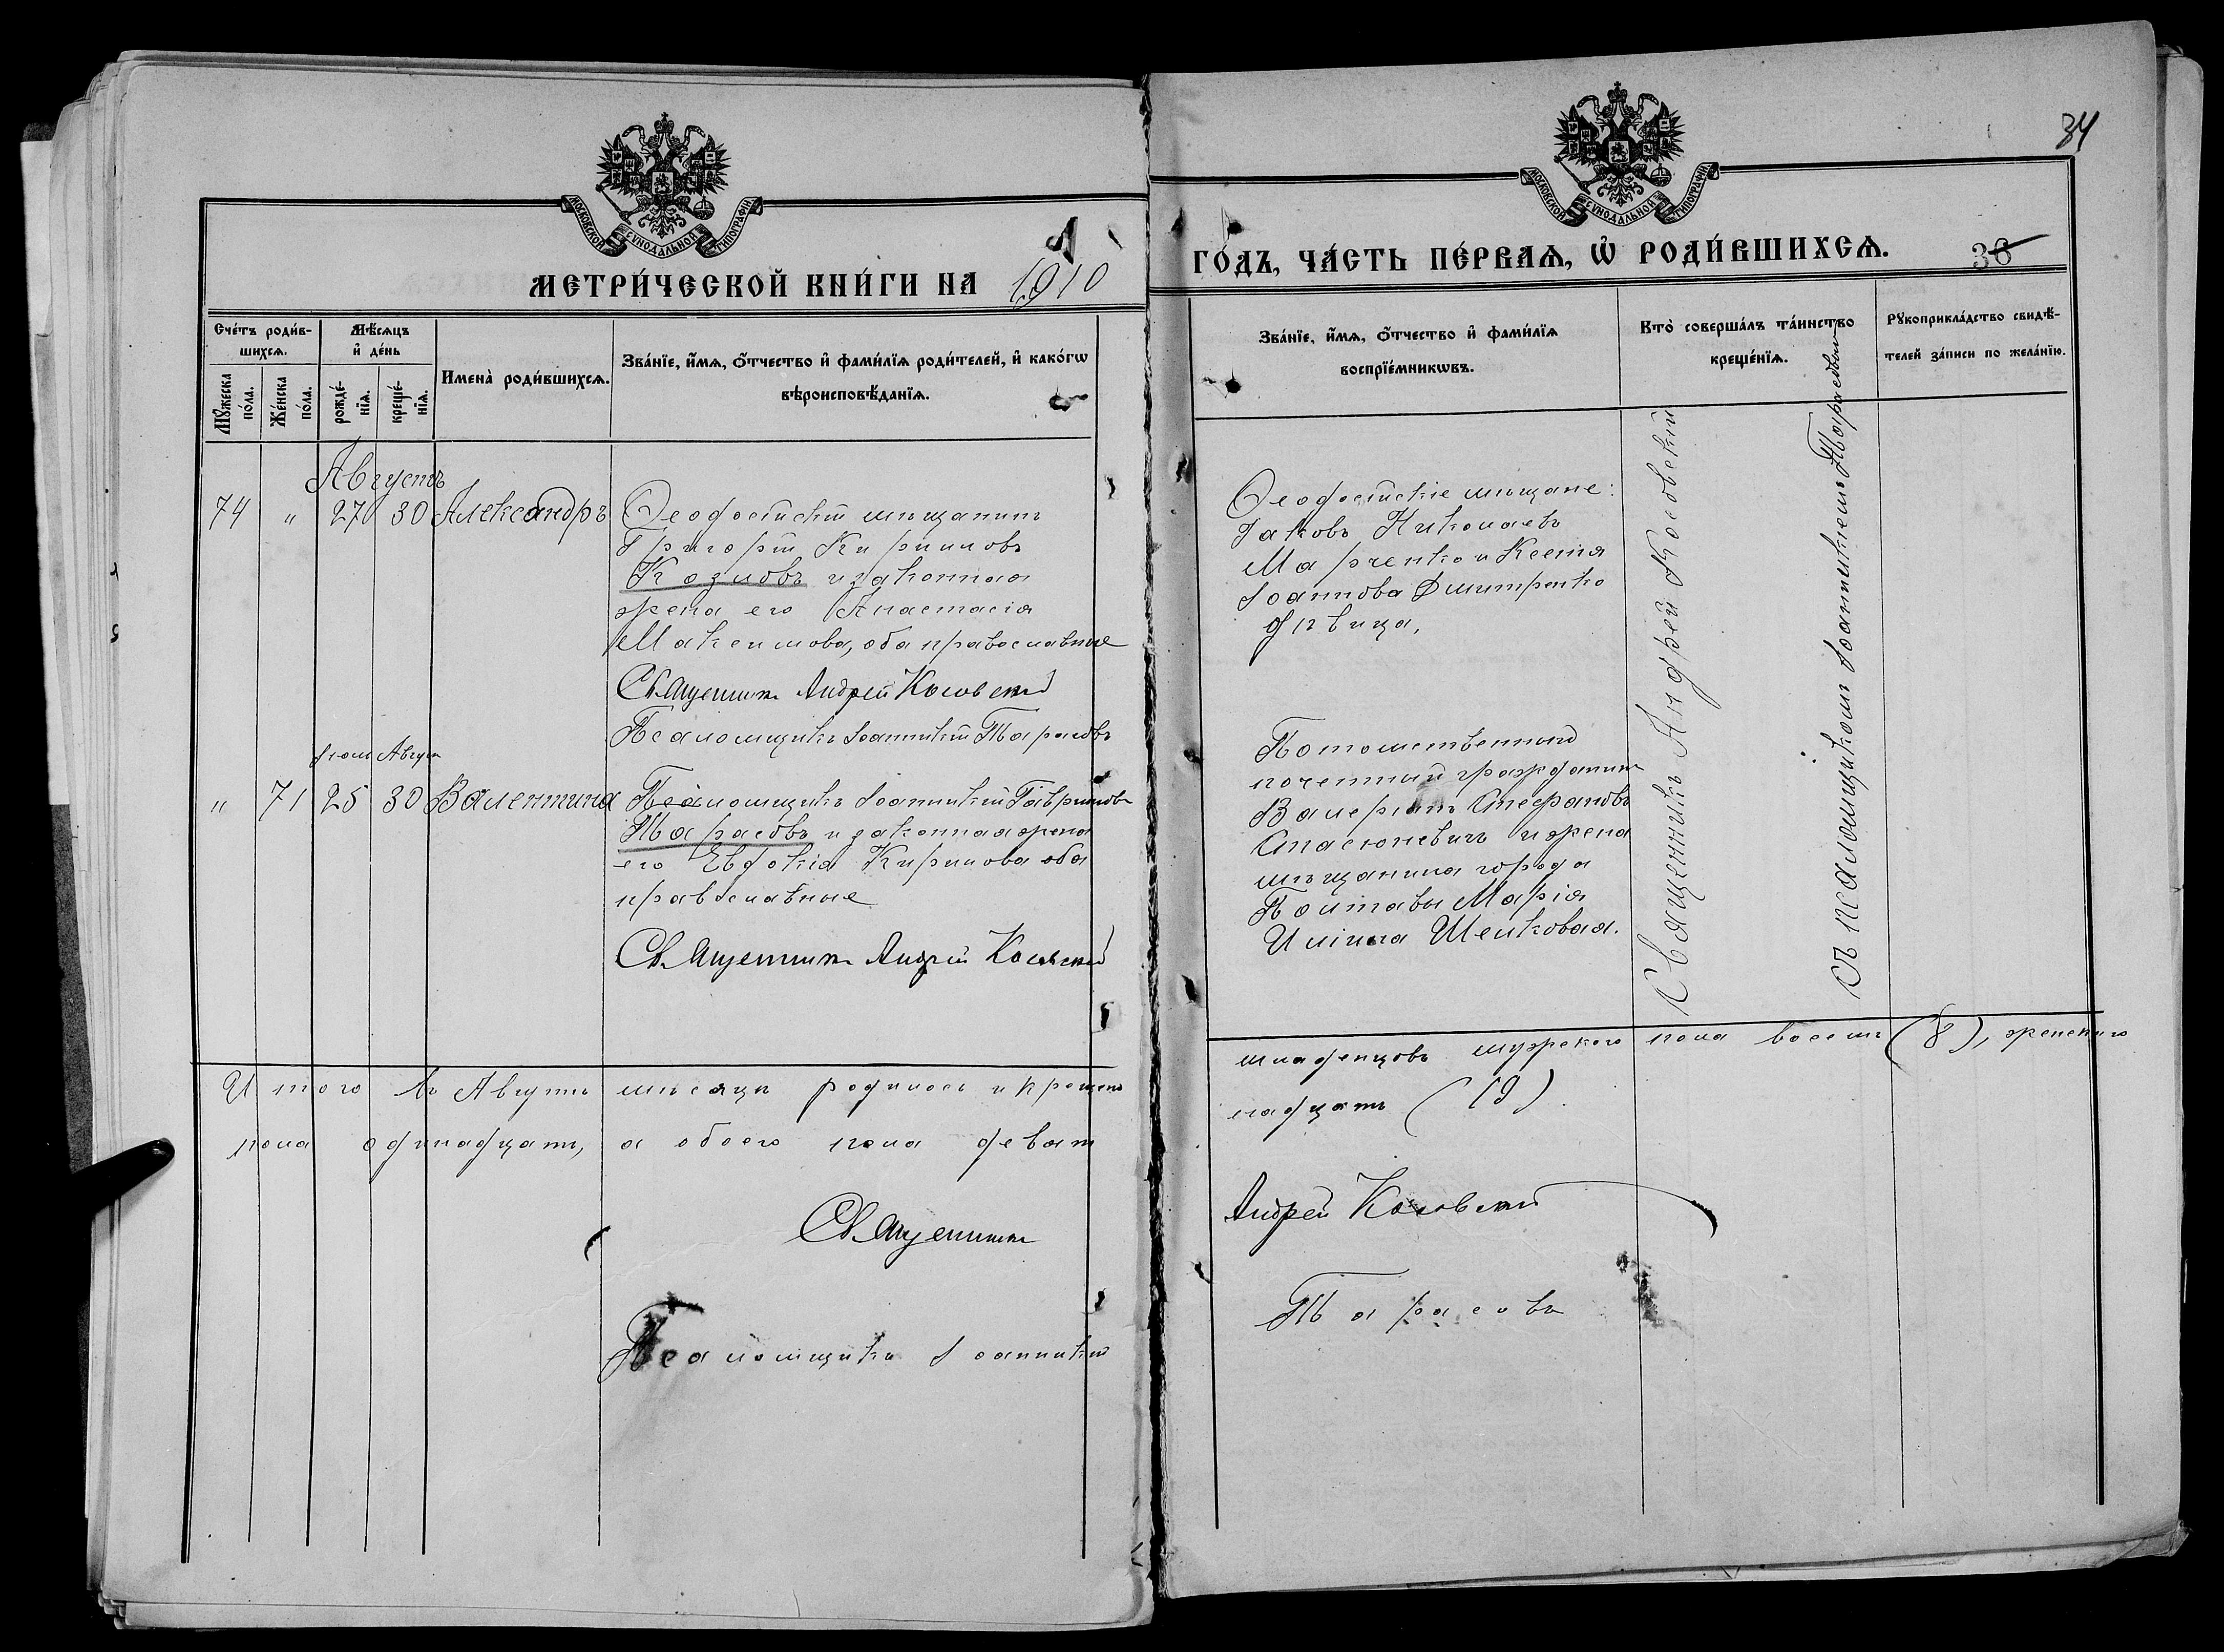 МОСКОВСКОЙ СѴНОДАЛЬНОЙ ТИПОГРАФІИ
МЕТРИ́ЧЕСКОЙ КНИ́ГИ НА 1910
Сче́тъ роди́в-
шихсѧ.
Мѣ́сѧцъ
и҆ де́нь
Мꙋ́жеска
по́ла.
Же́нска
по́ла.
рожде́-
нїѧ.
креще́-
нїѧ.
Имена̀ роди́вшихсѧ.
Зва́нїе, и҆́мѧ, ѻ҆́тчество и҆ фами́лїѧ роди́телей, и҆ како́гѡ
вѣроисповѣ́данїѧ.
Августъ
74 " 27 30 Александръ
Ѳеодосійскій мѣщанинъ
Григорій Кириловъ
Козловъ и законная
жена его Анастасія
Максимова, оба православные
Священникъ Андрей Косовскій
Псаломщикъ Іоанникій Тарасовъ
Іюль Август
" 71 25 30 Валентина
Псаломщикъ Іоанникій Гавриловъ
Тарасовъ и законная жена
его Евдокія Кирилова оба
православные
Священникъ Андрей Косовскій
Итого въ Августѣ мѣсяцѣ родилось и крещено
пола одинадцать, а обоего пола девят
Священникъ
Псаломщикъ Іоанникій
34
МОСКОВСКОЙ СѴНОДАЛЬНОЙ ТИПОГРАФІИ
ГО́ДЪ, ЧА́СТЬ ПЕ́РВАѦ, Ѡ҆ РОДИ́ВШИХСѦ.
36
Зва́нїе, и҆́мѧ, ѻ҆́тчество и҆ фами́лїѧ
воспрїе́мникѡвъ.
Кто̀ соверша́лъ та́инство
креще́нїѧ.
Рꙋкоприкла́дство свидѣ́-
телей за́писи по жела́нїю.
Ѳеодосійскіе мѣщане:
Іаковъ Николаевъ
Марченко и Ксенія
Іоаннова Дмитренко
дѣвица,
Потомственный
почетный гражданинъ
Валеріанъ Стефановъ
Стасюневичъ и жена
мѣщанина города
Полтавы Марія
Илiина Шелковая.
Священникъ Андрей Косовскій
съ псаломщикомъ Іоанникіемъ Тарасовым
младенцовъ мужского пола восемь (8), женского
надцать (19).
Андрей Косовскій
Тарасовъ